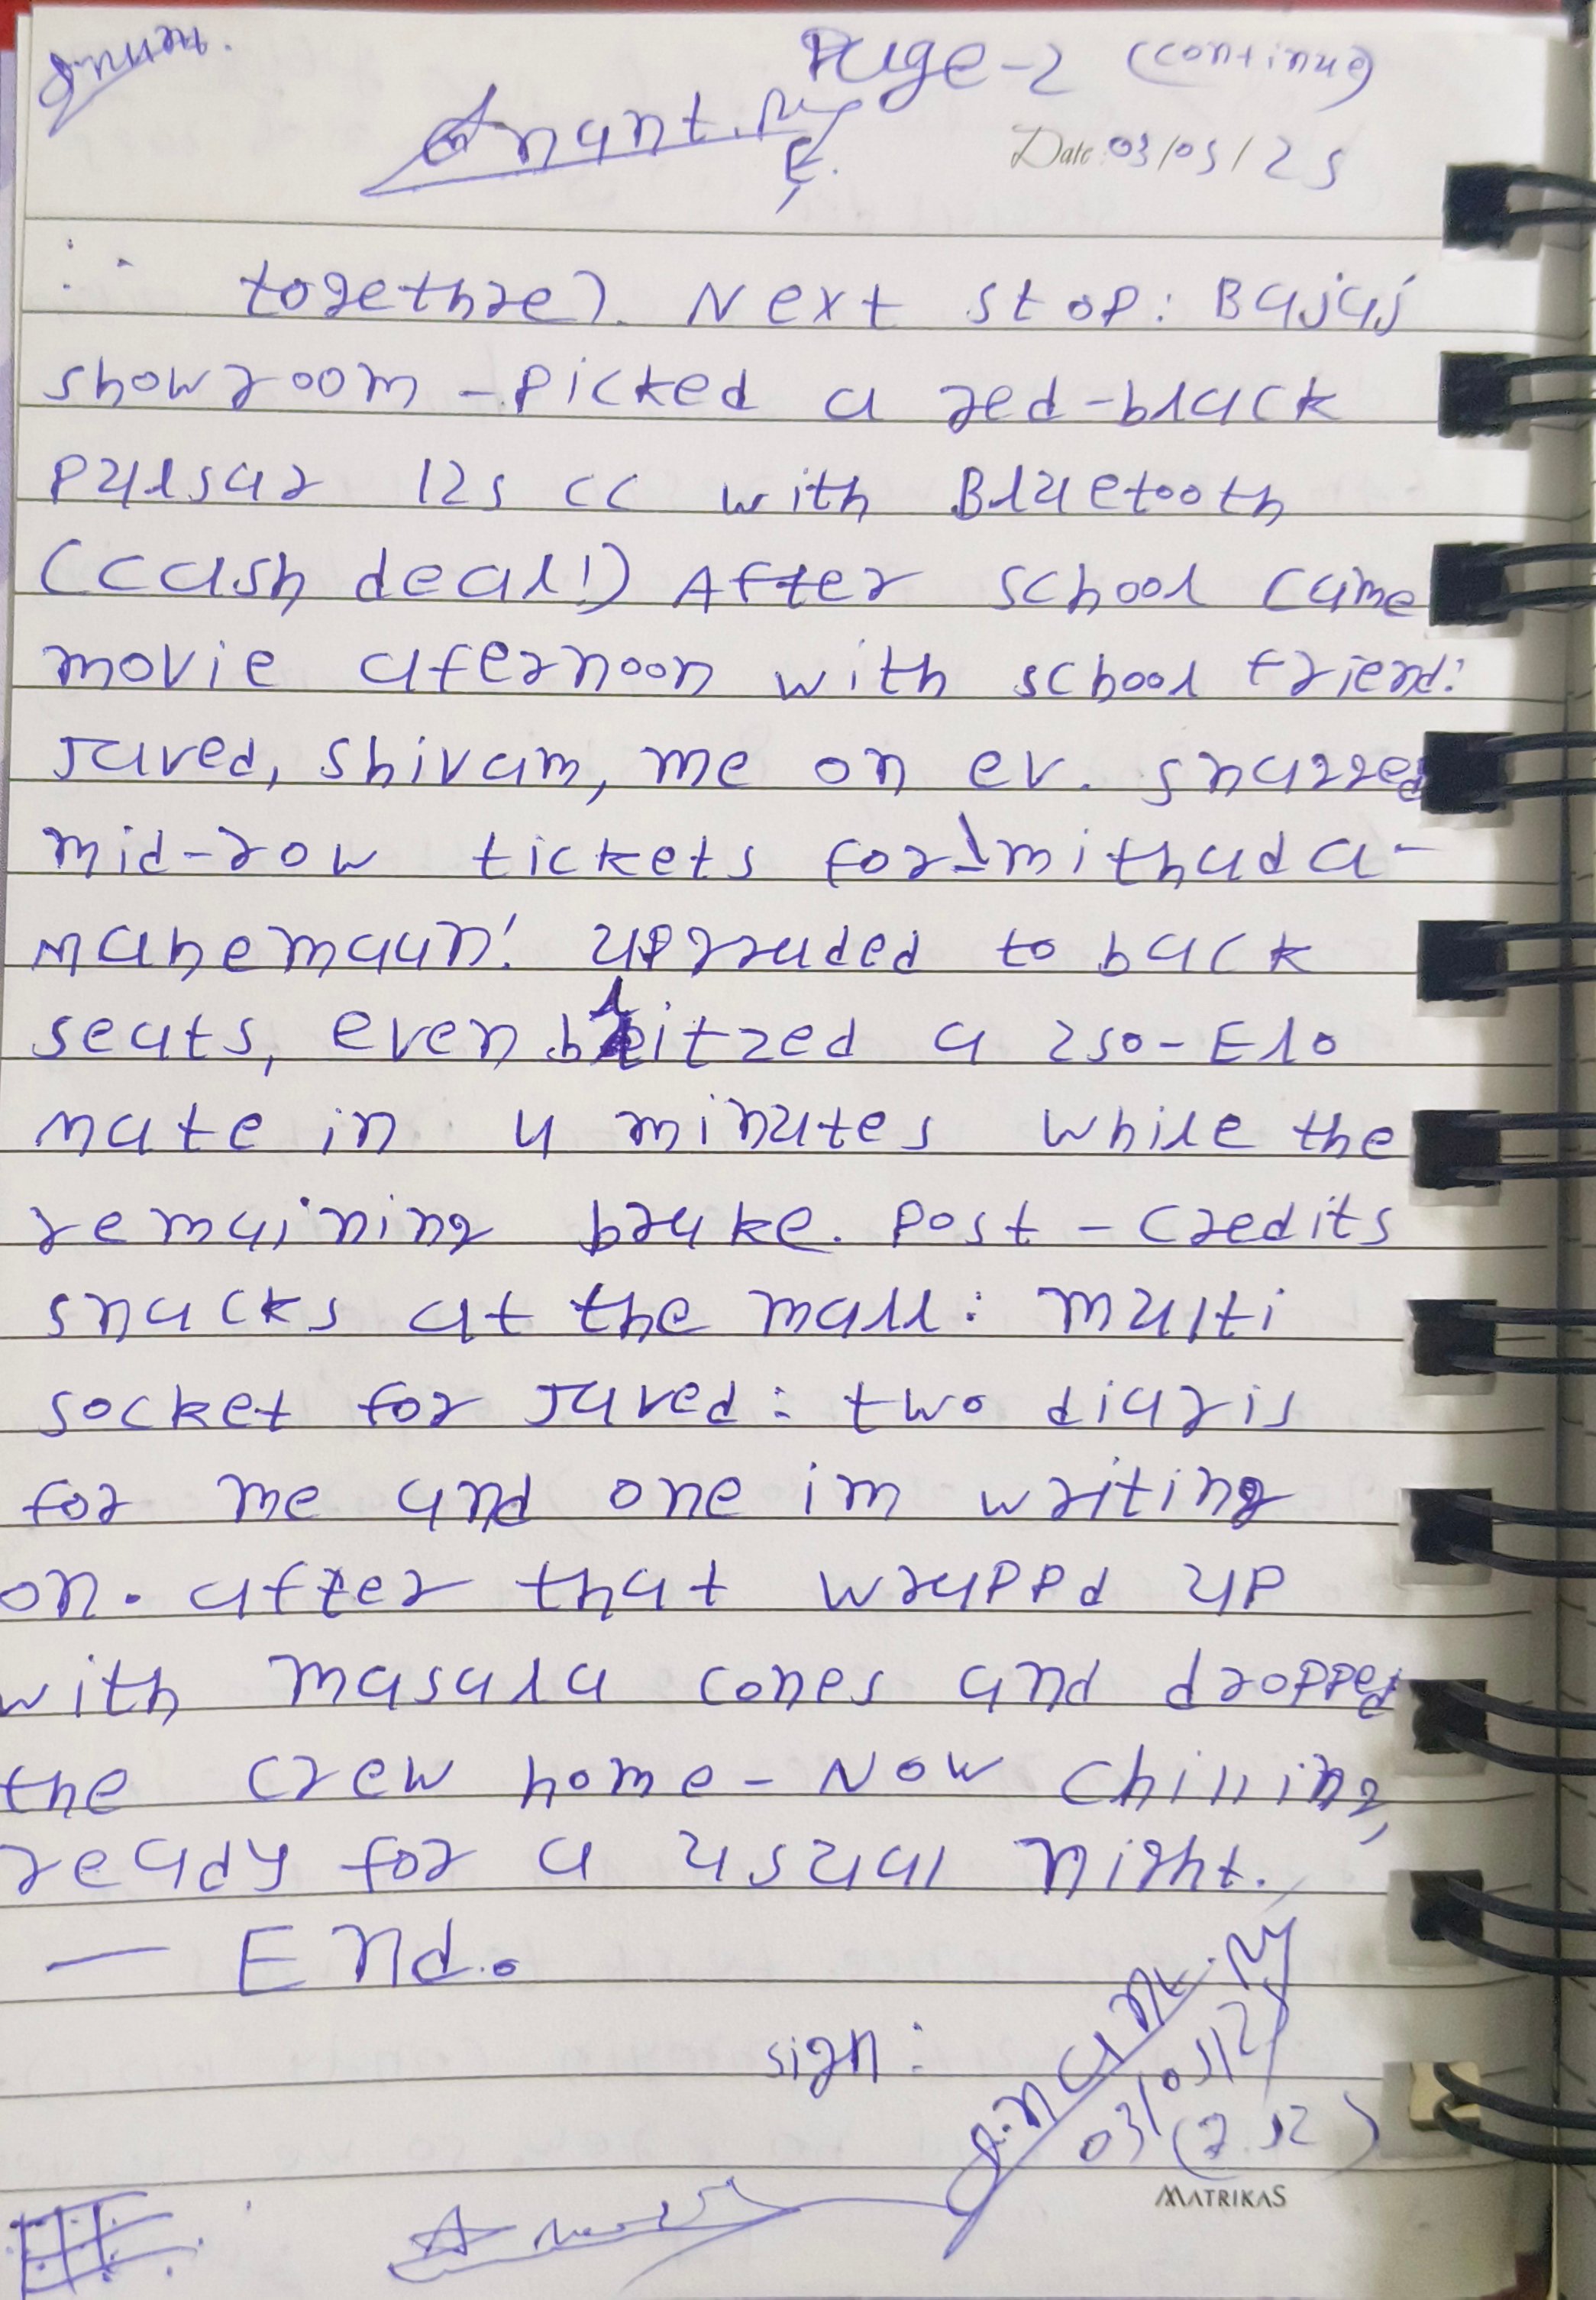 Page-2 (continue)
Anant.N
Date 03/05/25
together). Next stop: Bajaj
showroom - picked a red-black
pulsar 125 cc with Bluetooth
(cash deal!) After school came
movie afernoon with school friend:
Javed, Shivam, me on ev. snarred
mid-row tickets for mithada-
Mahemaan! upgraded to back
seats, even blitzed a 250-Elo
mate in 4 minutes while the
remaining brake. Post-credits
snacks at the mall: multi
socket for Javed: two diaris
for me and one im writing
on. after that wrappd up
with masala cones and dropped
the crew home - Now chilling,
ready for a usual night.
— End.
sign:
Anant.N
03/05/25
MATRIKAS